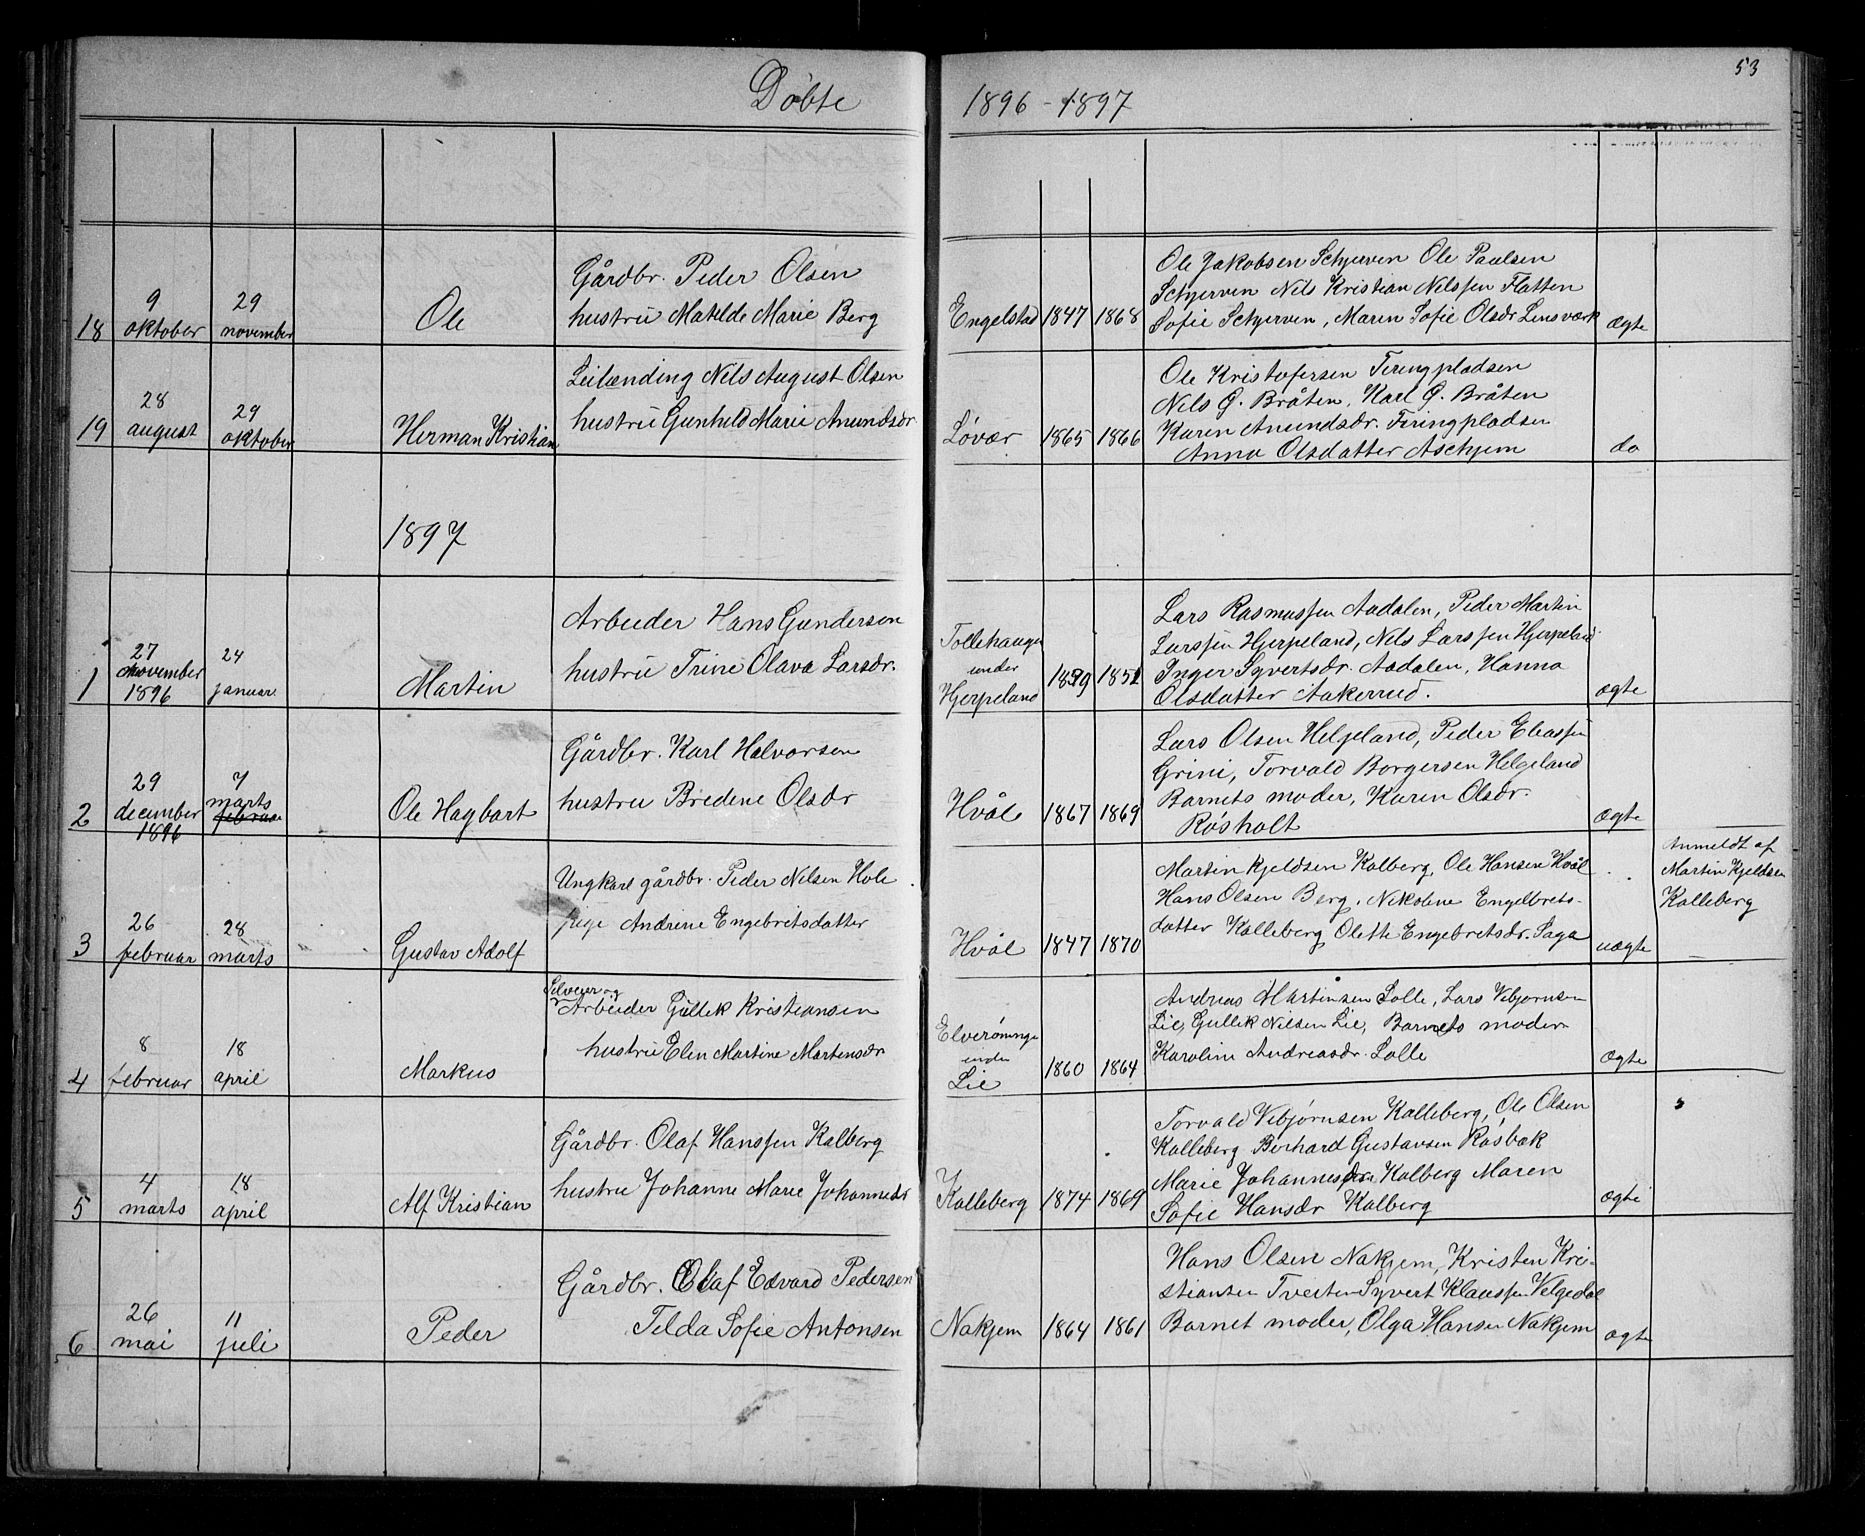 53
Døbte 1896-1897
18
9
oktober
29
november
Ole
Gårdbr. Peder Olsen
hustru Matilde Marie Berg
Engelstad
1847
1868
Ole Jakobsen Schjerven Ole Paulsen
Schjerven Nils Kristian Nilssen Flatten
Sofie Schjerven, Maren Sofie Olsdr. Linsværk
ægte
19
28
august
29
oktober
Herman Kristian
Leilænding Nils August Olsen
hustru Gunhild Marie Amundsdr
Løvær
1865
1866
Ole Kristofersen Firingpladsen
Nils G. Bråten, Karl G. Bråten
Karen Amundsdr. Firingpladsen
Anna Olsdatter Aschjem
do
1897
1
27
november
1896
24
januar
Martin
Arbeider Hans Gundersen
hustru Trine Olava Larsdr.
Tollehaugen
under
Hjerpeland
1859
1851
Lars Rasmussen Aadalen, Peder Martin
Larssen Hjerpeland, Nils Larssen Hjerpeland
Inger Syvertsdr. Aadalen, Hanna
Olsdatter Aakerrud.
ægte
2
29
december
1896
7
marts
februar
Ole Hagbart
Gårdbr. Karl Halvorsen
hustru Bredene Olsdr
Hvål
1867
1869
Lars Olsen Helgeland, Peder Eliassen
Grini, Torvald Borgersen Helgeland
Barnets moder, Karen Olsdr.
Røsholt
ægte
3
26
februar
28
marts
Gustav Adolf
Ungkarl gårdbr. Peder Nilsen Hole
pige Andrene Engebretsdatter
Hvål
1847
1870
Martin Kjeldsen Kalberg, Ole Hansen Hvål
Hans Olsen Berg, Nikoline Engelbrets-
datter Kalleberg Olette Engebretsdr. Saga
uægte
Anmeldt af
Martin Kjeldsen
Kalleberg
4
8
februar
18
april
Markus
Selveier og
Arbeider Gullik Kristiansen
hustru Elen Martine Martensdr
Elverønningen
under
Lie
1860
1864
Andreas Martinsen Lolle, Lars Vebjørnsen
Lie, Gullik Nilsen Lie, Barnets moder
Karoline Andreasdr. Lolle
ægte
5
4
marts
18
april
Alf Kristian
Gårdbr. Olaf Hanssen Kalberg
hustru Johanne Marie Johannesdr
Kalleberg
1874
1869
Torvald Vebjørnsen Kalleberg, Ole Olsen
Kalleberg Berhard Gustavsen Råsbæk
Marie Johannesdr. Kalberg Maren
Sofie Hansdr Kalberg
ægte
6
26
mai
11
juli
Peder
Gårdbr. Olaf Edvard Pedersen
Tilda Sofie Antonsen
Nakjem
1864
1861
Hans Olsen Nakjem, Kristen Kri-
stiansen Tveiten Syvert Klaussen Velgedal
Barnet moder, Olga Hansen Nakjem
ægte